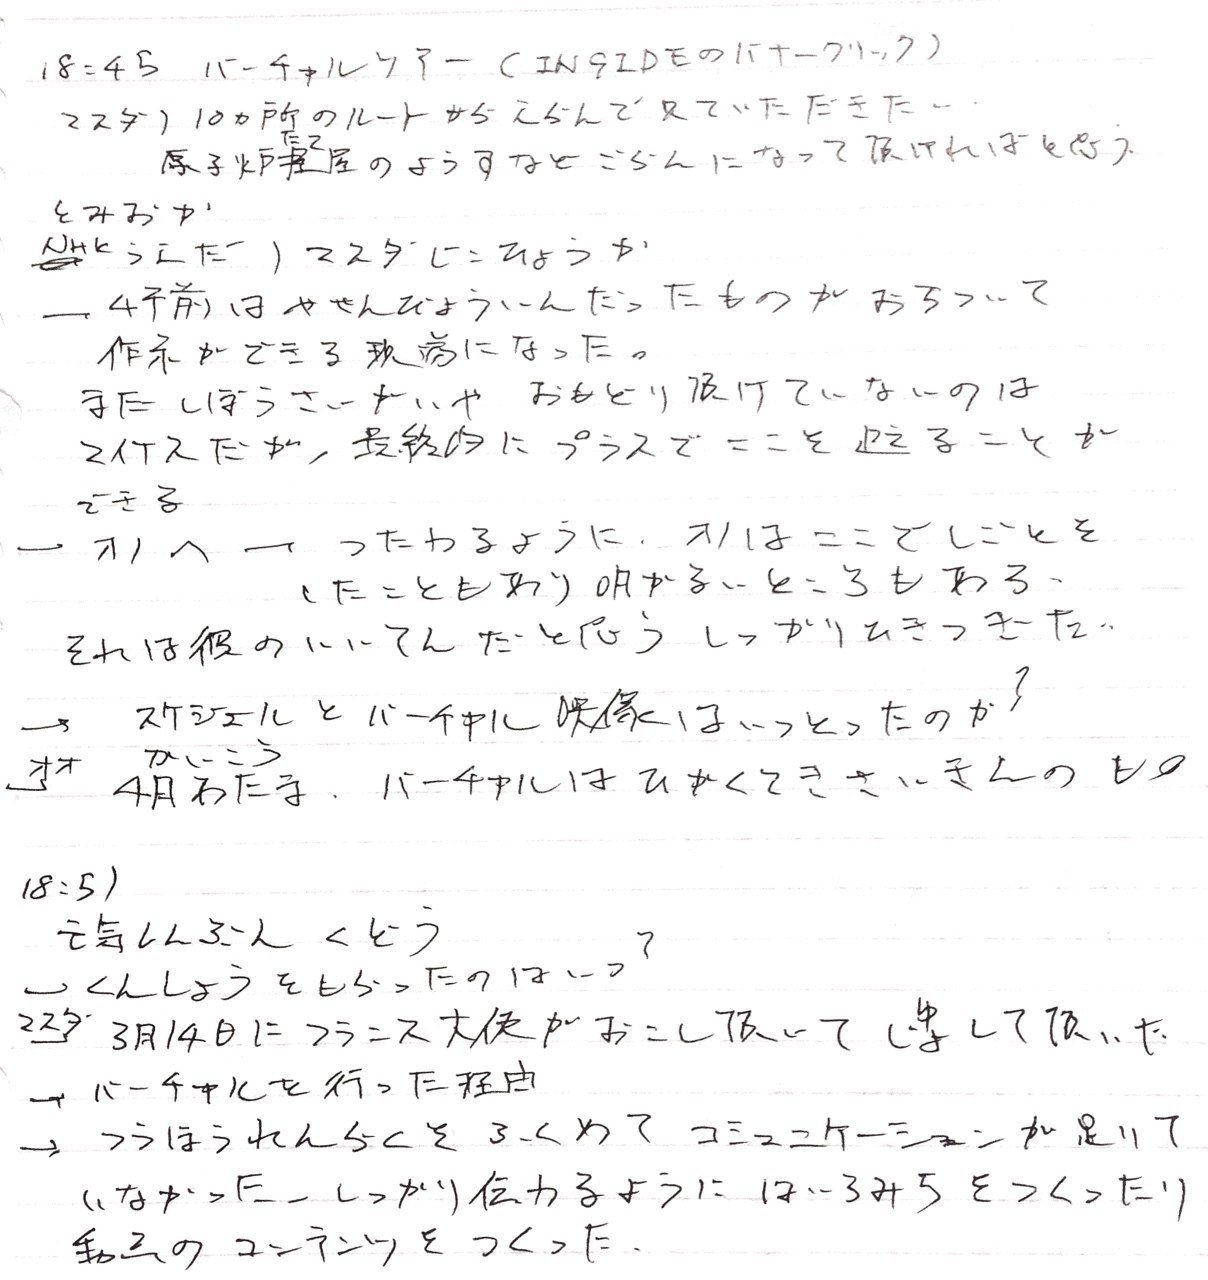 18:45 バーチャルツアー(INSIDEのバナークリック)
マスダ) 10カ所のルートからえらんで見ていただきたい.
たて
原子炉建屋のようすなどごらんになって頂ければと思う.
とみおか
NHK うえだ) マスダじこひょうか
→ 4年前はやせんびょういんだったものがおちついて
作業ができる現場になった。
まだしぼうさいがいや おもどり頂けていないのは
マイナスだが、最終的にプラスでここを迎えることが
できる
→ オノへ → つたわるように. オノはここでしごとを
したこともあり明かるいところもある.
それは彼のいいてんだと思う しっかりひきつぎた..
→ スケジュールとバーチャル映像はいつとったのか?
かいこう
オオ 4月わたす. バーチャルはひかくてきさいきんのもの
18:51
電気しんぶん くどう
→ くんしょうをもらったのはいつ?
マスダ 3月14日にフランス大使がおこし頂いて して頂いた
→ バーチャルを行った理由
→ つうほうれんらくをふくめてコミュニケーションが足りて
いなかった - しっかり伝わるように はいろみちをつくったり
動画のコンテンツをつくった.